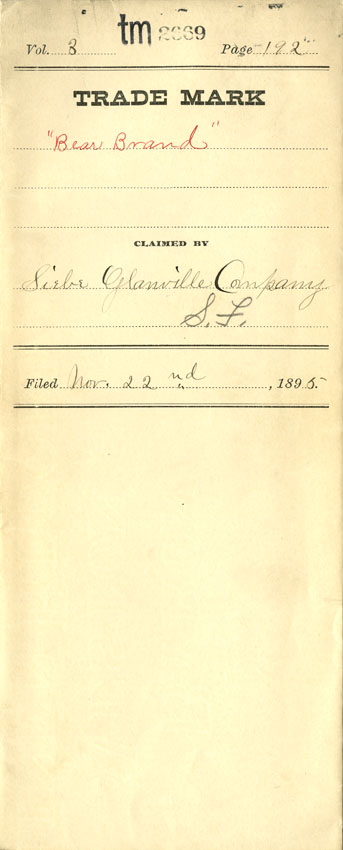 tm 2669
Vol. 3 Page 192
TRADE MARK
"Bear Brand"
CLAIMED BY
Siebe Glanville Company
S.F.
Filed Nov. 22nd, 1895.